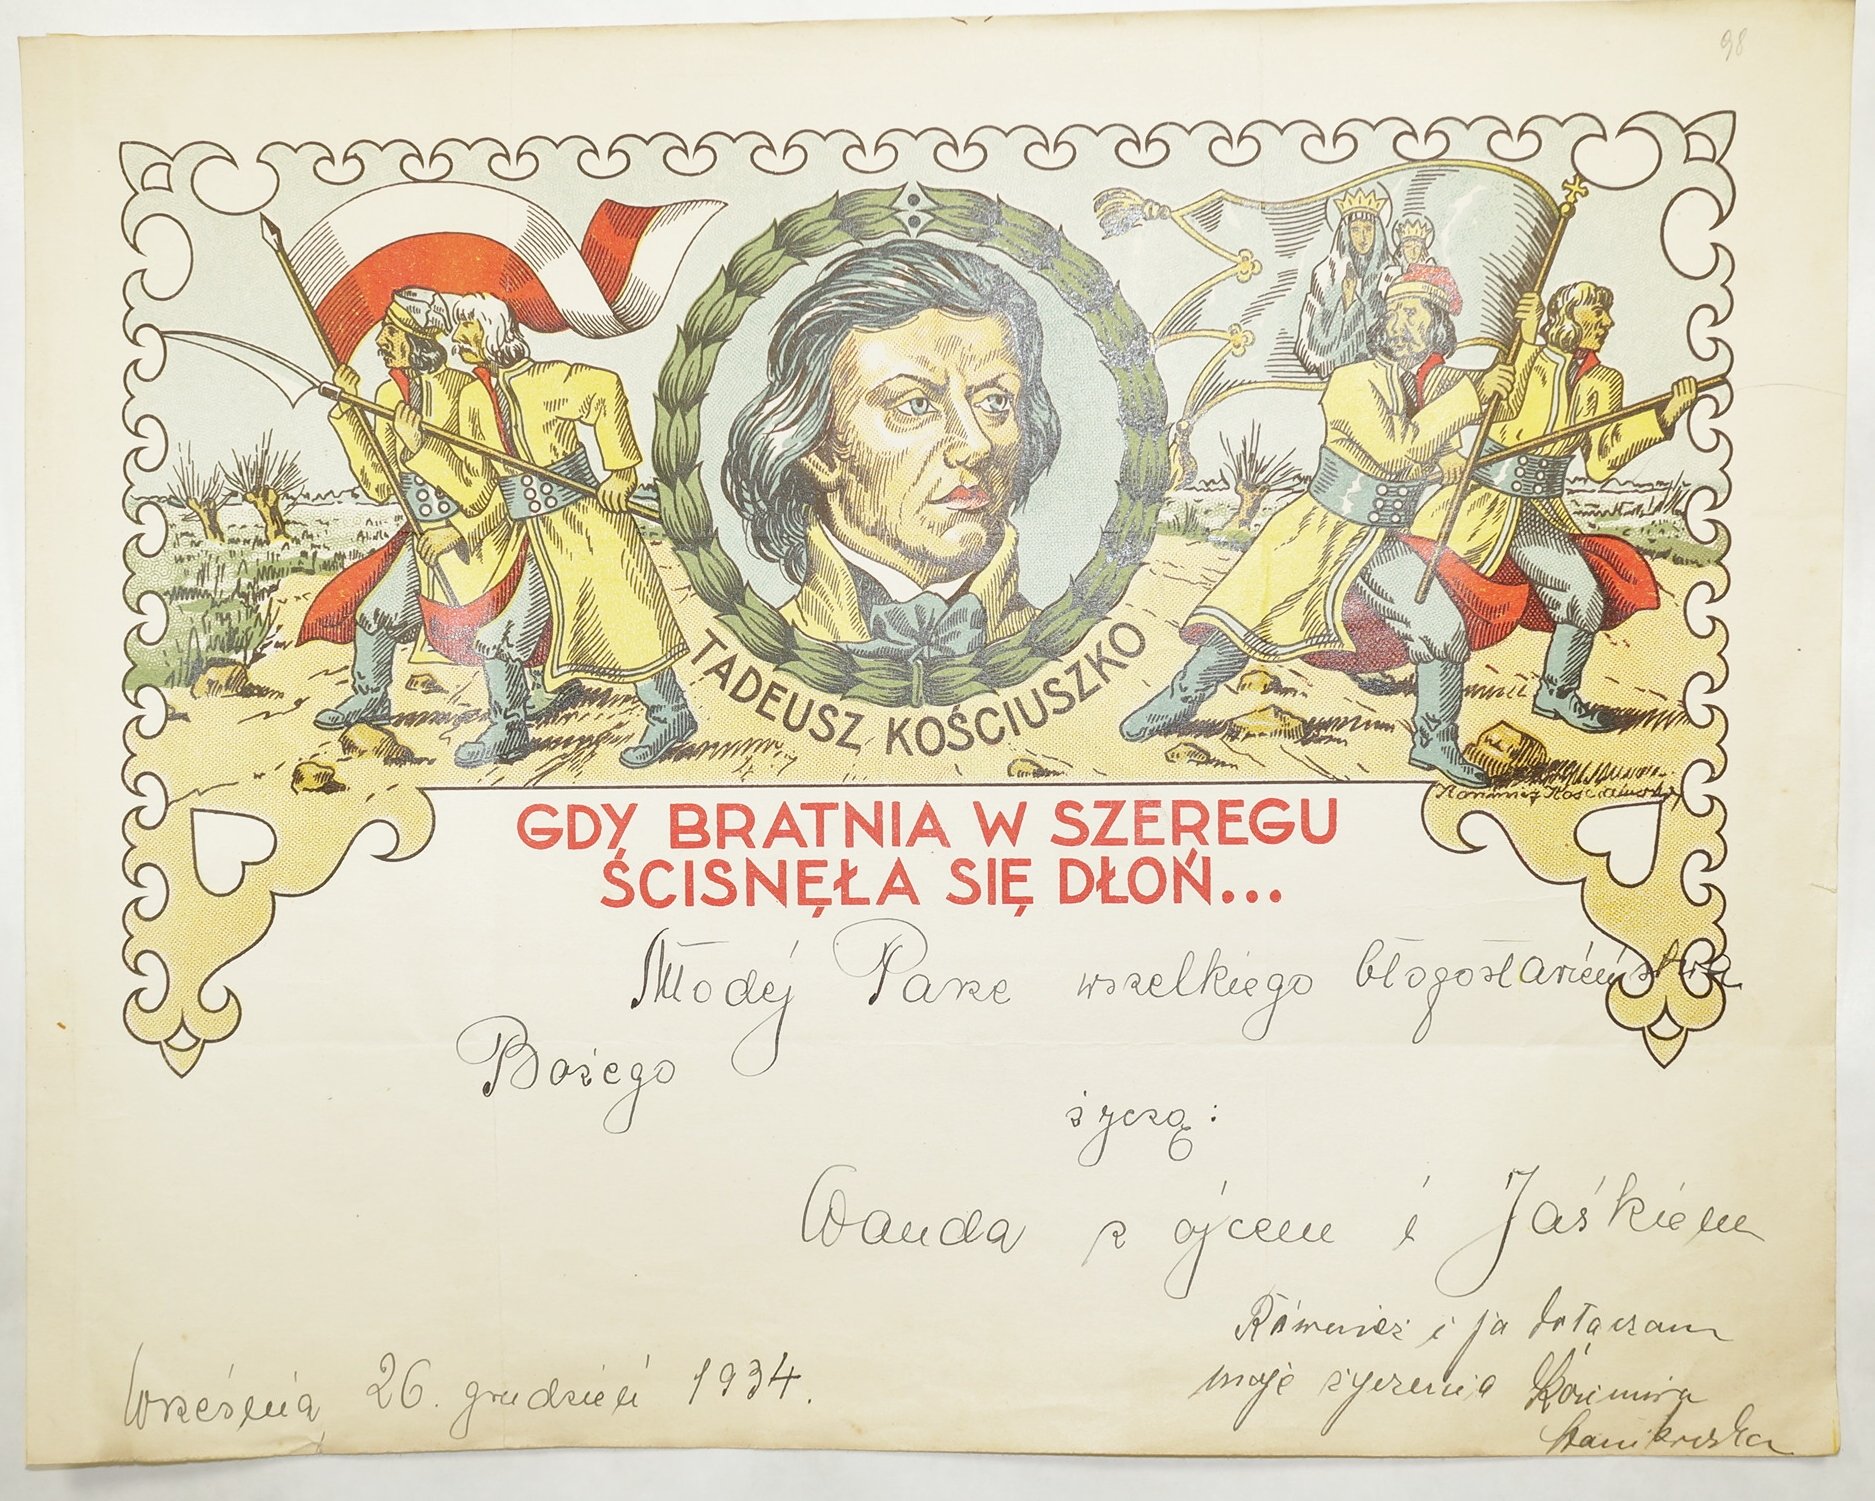 98
TADEUSZ KOŚCIUSZKO
GDY BRATNIA W SZEREGU
ŚCISNĘŁA SIĘ DŁOŃ...
Młodej Parze wszelkiego błogosławieństwa
Bożego
życzą:
Wanda z ojcem i Jaśkiem
Również i ja dołączam
moje życzenia
Września 26. grudzień 1934.